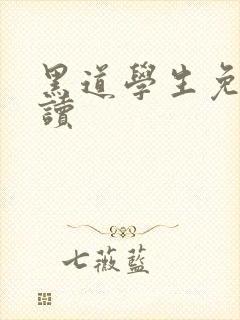 黑道學生免
讀
七薇藍